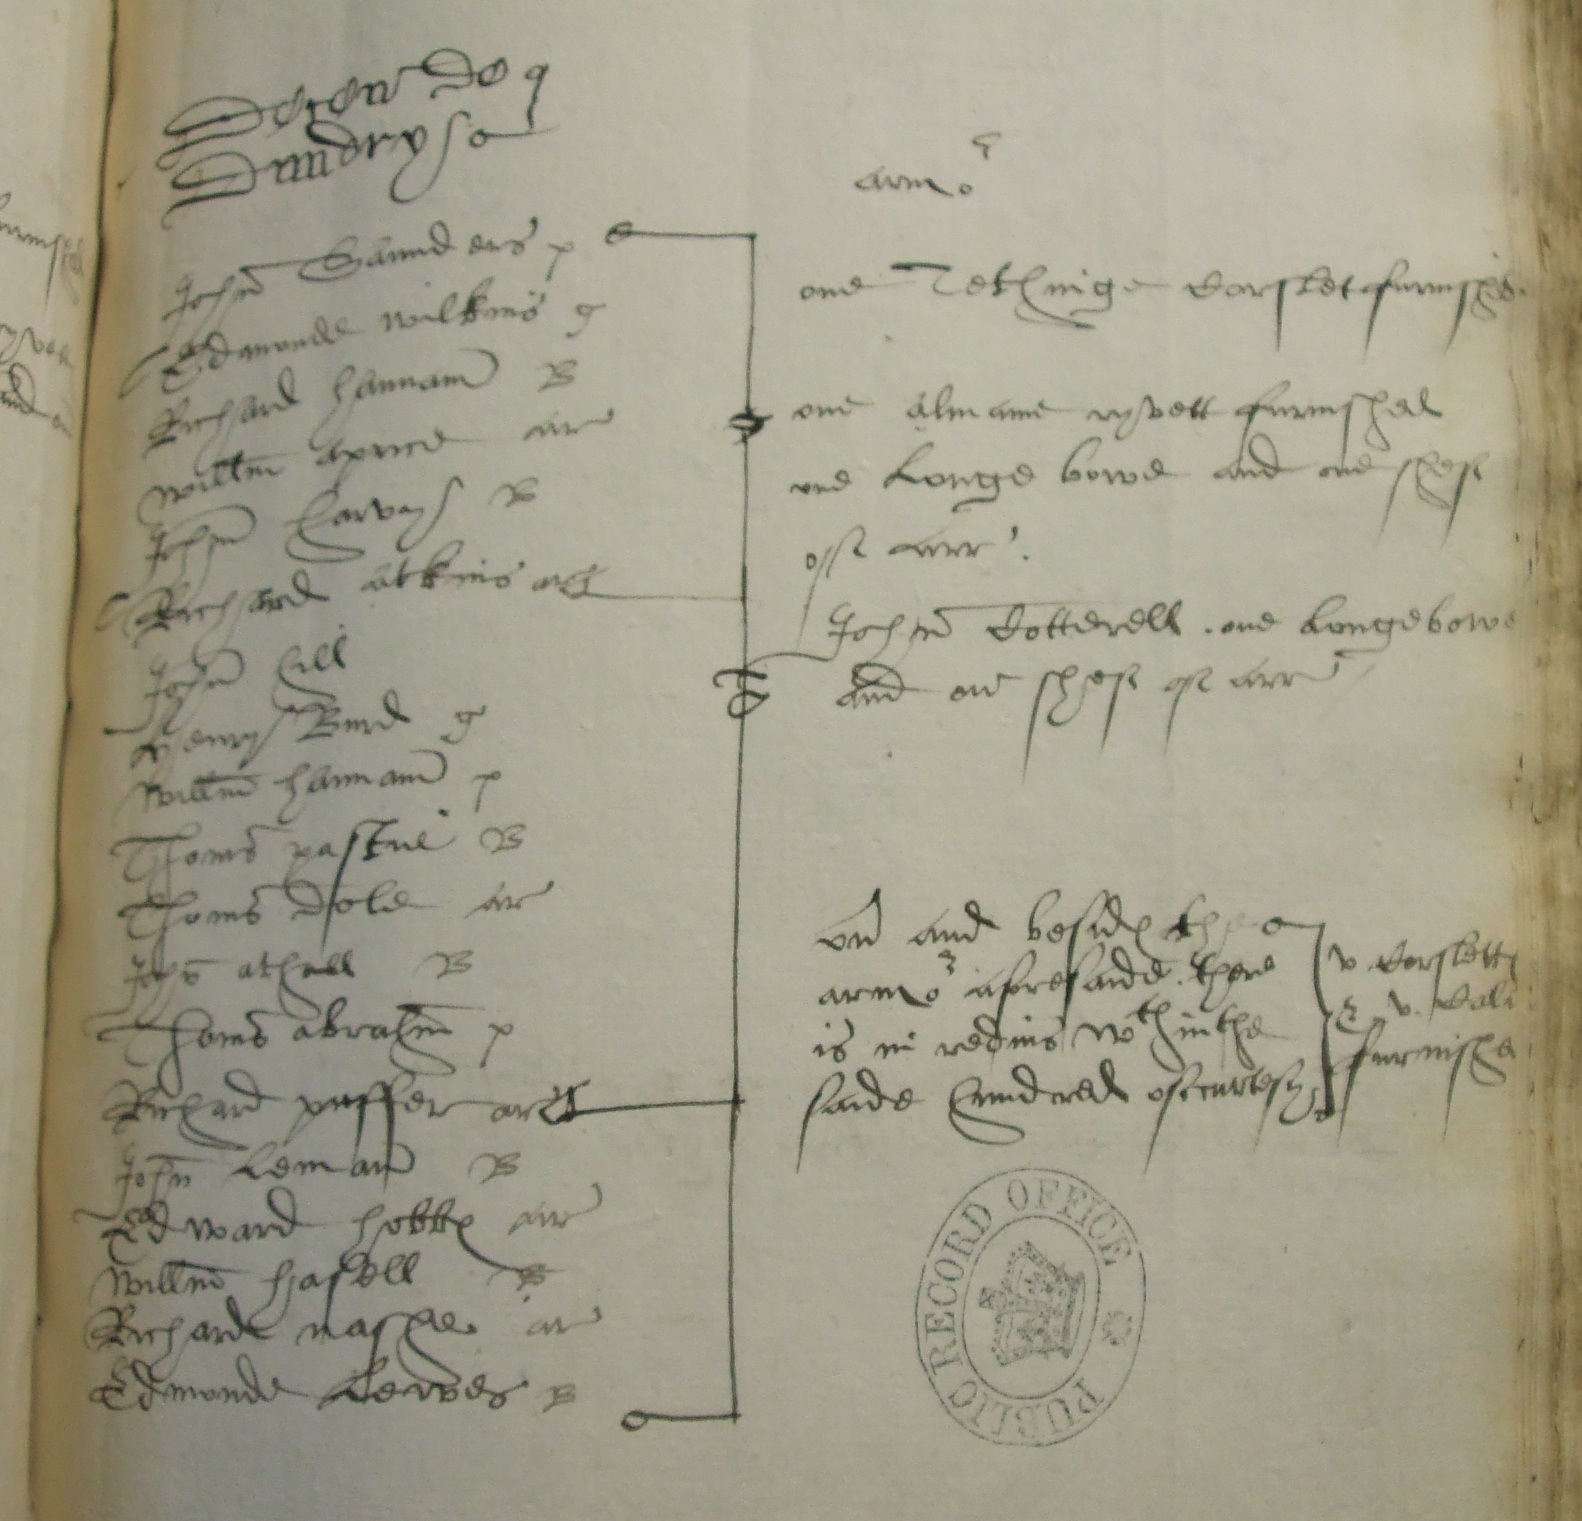 Decen de
Dundry
John Saunders p
Edmonde Wilkins g
Richard Hannam B
Willm aprice ar
John Harvys B
Richard atkins ar
John Hill
Henry Burd g
Willm Hannam p
Thoms B
Thoms Dole ar
John athall B
Thoms abraham p
Richard puffer ar
John Leman B
Edward Hobbs ar
Willm Hasell B
Richard Nashe ar
Edmonde Lewes B
armo r
one Tethinge Corslet furnished
one almaine ryvett furnished
one Longe bowe and one shef
off arr
John Cotterell one Longe bowe
and one shef of arr
and besids the
armor aforesaide there
is in redines wthin the
saide Hundred of
v. Corsletts
& v. Cali
furnishe
PUBLIC RECORD OFFICE